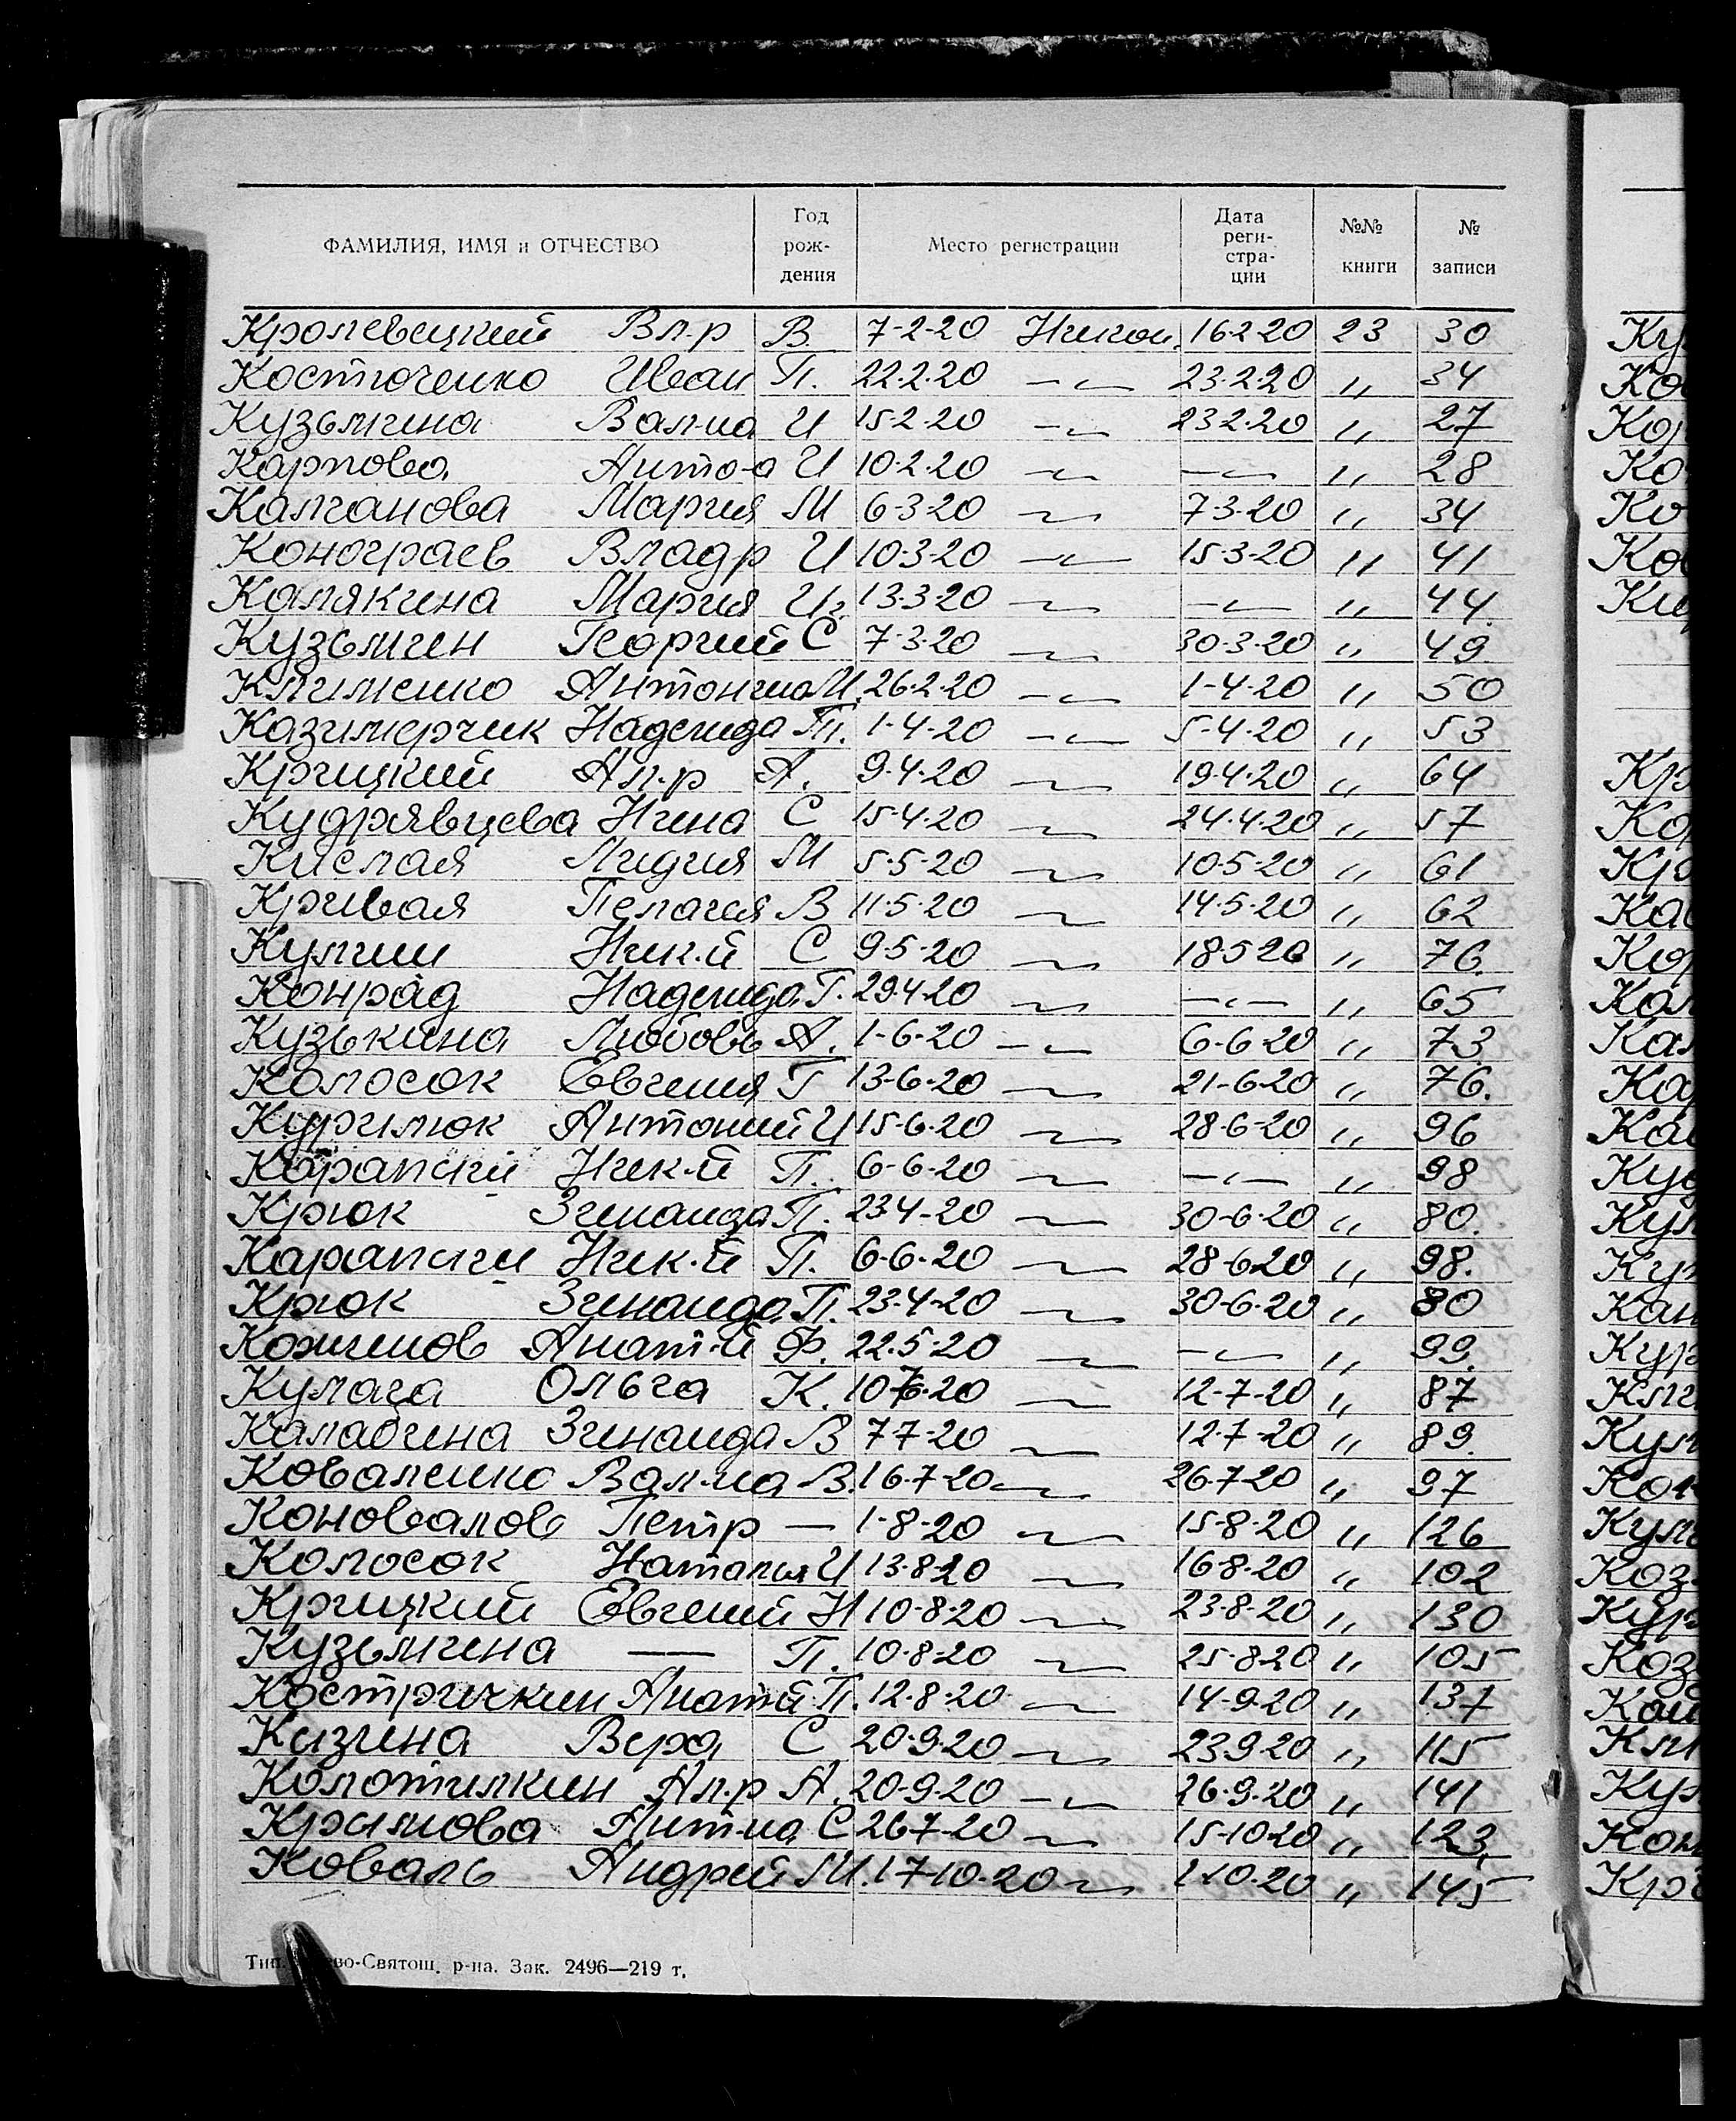 ФАМИЛИЯ, ИМЯ и ОТЧЕСТВО Год рождения Место регистрации Дата реги-стра-ции №№ книги № записи
Кролевецкий Вл.р В. 7-2-20 Никол. 16-2-20 23 30
Костюченко Иван П. 22.2.20 –〃– 23.2.20 〃 34
Кузьмина Вал-на И 15-2-20 –〃– 23-2-20 〃 27
Карпова Анто-а И 10-2-20 –〃– –〃– 〃 28
Калганова Мария М 6-3-20 –〃– 7-3-20 〃 34
Конограев Владр И 10-3-20 –〃– 15-3-20 〃 41
Калякина Мария И. 13-3-20 –〃– –〃– 〃 44
Кузьмин Георгий С 7-3-20 –〃– 30-3-20 〃 49
Клименко Антонина И. 26-2-20 –〃– 1-4-20 〃 50
Казимерчик Надежда П. 1-4-20 –〃– 5-4-20 〃 53
Крицкий Ал.р А. 9-4-20 –〃– 19-4-20 〃 64
Кудрявцева Нина С 15-4-20 –〃– 24-4-20 〃 57
Кислая Лидия М 5-5-20 –〃– 10-5-20 〃 61
Кривая Пелагея В 11-5-20 –〃– 14-5-20 〃 62
Кулиш Ник.й С 9-5-20 –〃– 18-5-20 〃 76.
Конрад Надежда Г. 29-4-20 –〃– –〃– 〃 65
Кузькина Любовь А. 1-6-20 –〃– 6-6-20 〃 73
Колосок Евгения Г 13-6-20 –〃– 21-6-20 〃 76.
Курилюк Антоний И 15-6-20 –〃– 28-6-20 〃 96
Ник-й П. 6-6-20 –〃– –〃– 〃 98
Крюк Зинаида П. 23-4-20 –〃– 30-6-20 〃 80.
Ник-й П. 6-6-20 –〃– 28-6-20 〃 98.
Крюк Зинаида П. 23-4-20 –〃– 30-6-20 〃 80
Кожинов Анат-й Ф. 22.5-20 –〃– –〃– 〃 99.
Кулага Ольга К. –〃– 12-7-20 〃 87
Калабина Зинаида В 7-7-20 –〃– 12-7-20 〃 89.
Коваленко Вал-на В. 16-7-20 –〃– 26-7-20 〃 97
Коновалов Петр — 1-8-20 –〃– 15-8-20 〃 126
Колосок Наталья И 13-8-20 –〃– 16-8-20 〃 102
Крицкий Евгений Н 10-8-20 –〃– 23-8-20 〃 130
Кузьмина — П. 10-8-20 –〃– 25-8-20 〃 105
Костричкин Анат-й П. 12-8-20 –〃– 14-9-20 〃 137
Кизина Вера С 20-9-20 –〃– 23-9-20 〃 115
Колотилкин Ал.р А. 20-9-20 –〃– 26-9-20 〃 141
Крамова Ант-на С 26-7-20 –〃– 15-10-20 〃 123
Коваль Андрей М. 17-10-20 –〃– 〃 145
Тип. во-Святош. р-на. Зак. 2496—219 т.